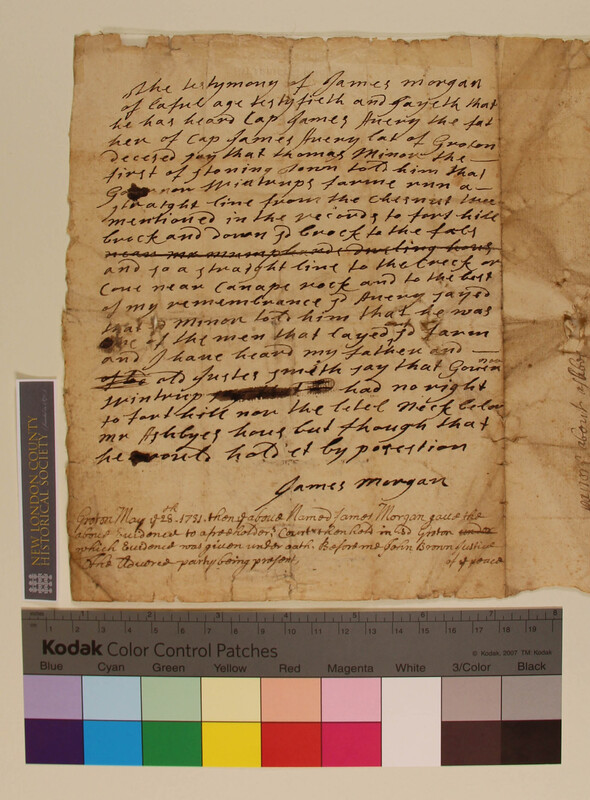 the testymony of James morgan
of laful age testyfieth and sayeth that
he has heard Cap James Avery the fat
her of Cap James Avery lat of Groton
decesed say that thomas Minor the
first of stoning town told him that
Governor Wintrups farme run a
straight line from the Chesnut tree
mentioned in the records to fort hill
brock and down sd brock to the fals
near dweling hous
and so a straight line to the Creek or
Cove near Canape rock and to the best
of my remembrance sd Avery sayed
that sd Minor told him that he was
one of the men that layed sd farem
and I have heard my father and
old Justes smith say that Gouern
nor
Wintrup had no right
to fort hill nor the letel Neck below
mr Ashbyes hous but though that
he would hold et by posestion
James Morgan
Groton May ye 28th 1731. then ye above Named James Morgan gave the
above Evidence to a freeholders Court then held in sd Groton under
which Evidence was given under oath. Before me John Brown Justice
of ye peace
The Adverce party being present,
NEW LONDON COUNTY
HISTORICAL SOCIETY
Kodak Color Control Patches
© Kodak, 2007 TM: Kodak
Blue Cyan Green Yellow Red Magenta White 3/Color Black